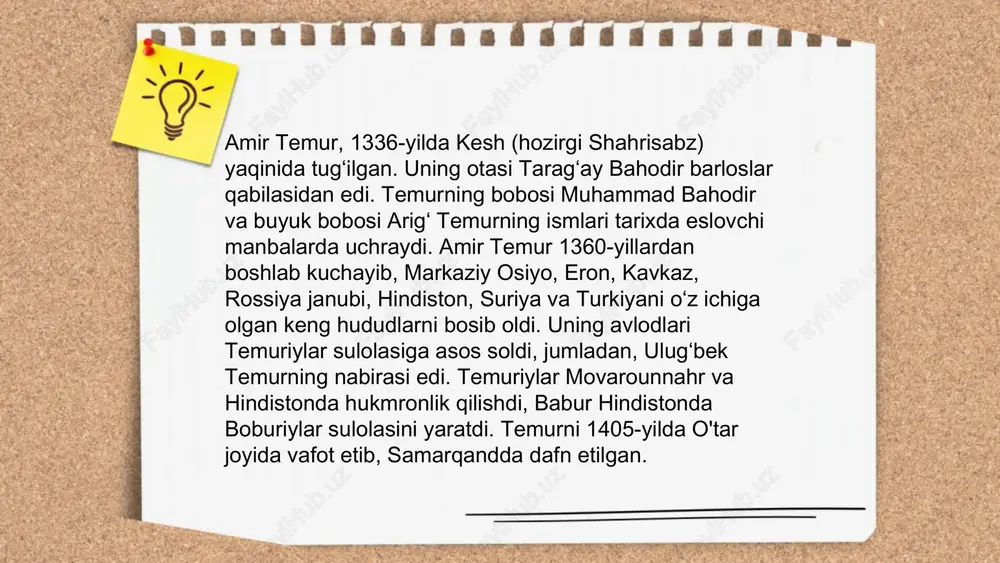 Amir Temur, 1336-yilda Kesh (hozirgi Shahrisabz)
yaqinida tug‘ilgan. Uning otasi Tarag‘ay Bahodir barloslar
qabilasidan edi. Temurning bobosi Muhammad Bahodir
va buyuk bobosi Arig‘ Temurning ismlari tarixda eslovchi
manbalarda uchraydi. Amir Temur 1360-yillardan
boshlab kuchayib, Markaziy Osiyo, Eron, Kavkaz,
Rossiya janubi, Hindiston, Suriya va Turkiyani o‘z ichiga
olgan keng hududlarni bosib oldi. Uning avlodlari
Temuriylar sulolasiga asos soldi, jumladan, Ulug‘bek
Temurning nabirasi edi. Temuriylar Movarounnahr va
Hindistonda hukmronlik qilishdi, Babur Hindistonda
Boburiylar sulolasini yaratdi. Temurni 1405-yilda O'tar
joyida vafot etib, Samarqandda dafn etilgan.
FaylHub.uz
FaylHub.uz
FaylHub.uz
FaylHub.uz
FaylHub.uz
FaylHub.uz
FaylHub.uz
FaylHub.uz
FaylHub.uz